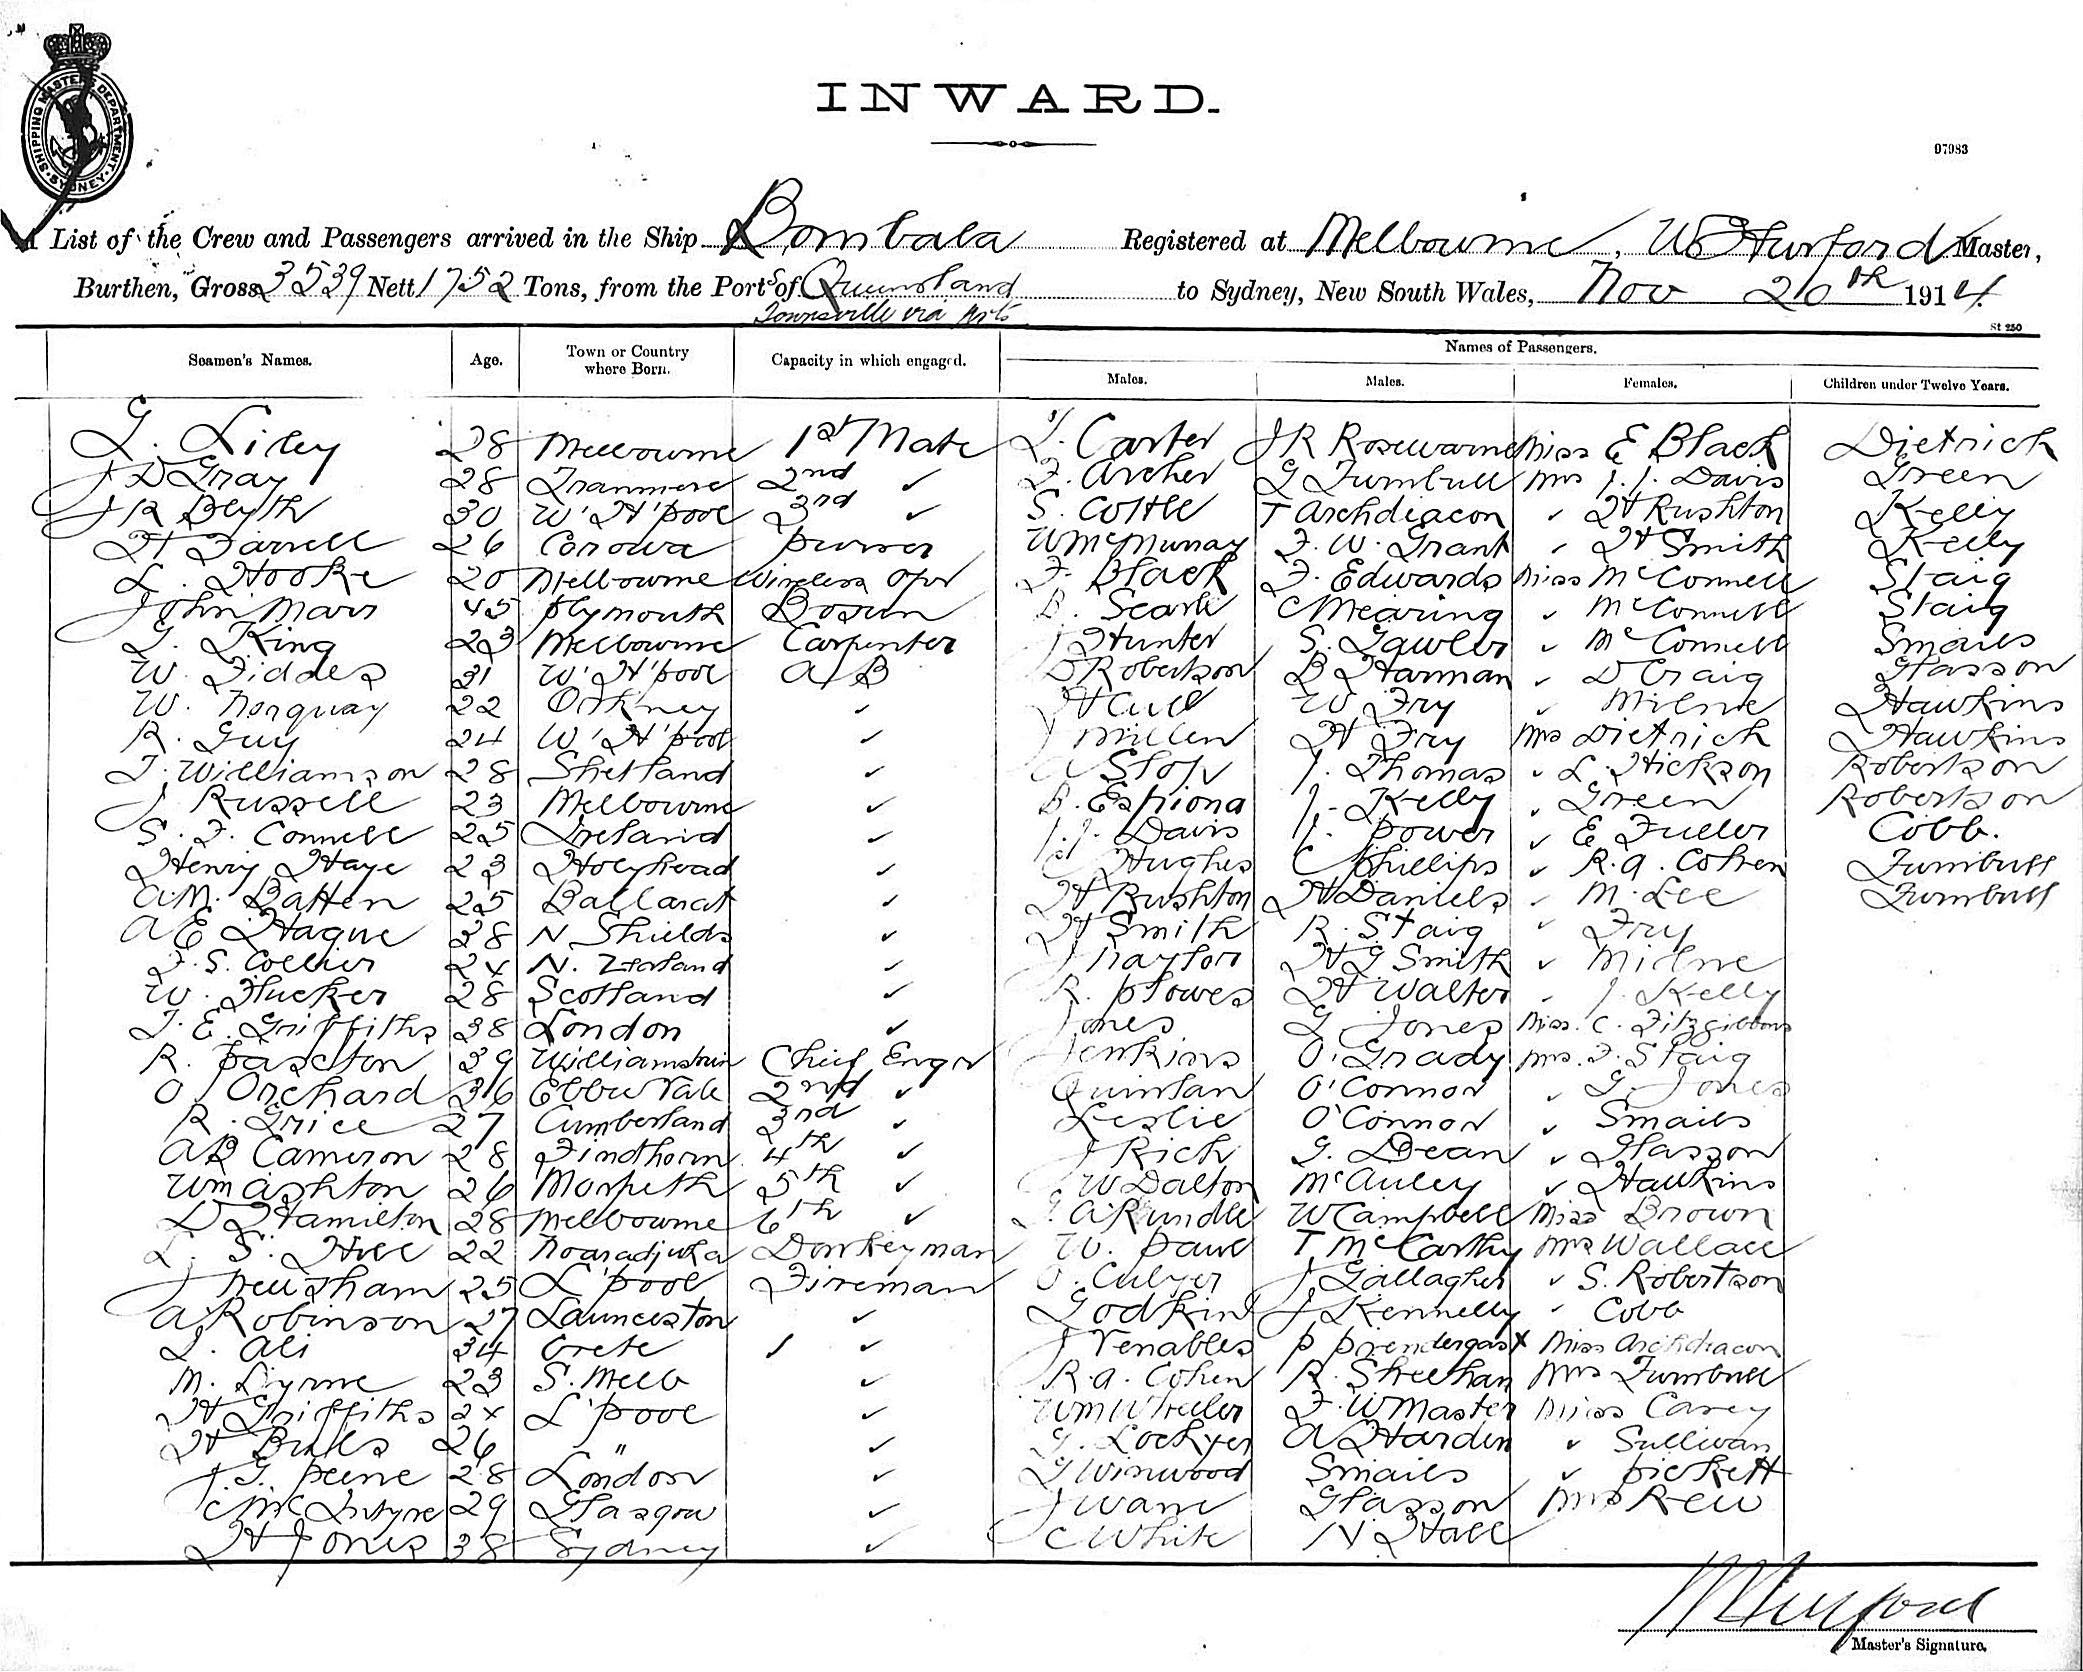 SHIPPING MASTER'S DEPARTMENT SYDNEY
INWARD.
07983
A List of the Crew and Passengers arrived in the Ship Bombala Registered at Melbourne, W Hurford Master,
Burthen, Gross 3539 Nett 1752 Tons, from the Ports of Queensland to Sydney, New South Wales, Nov 20th 1914.
Townsville via Ports
St 250
Seamen's Names. Age. Town or Country where Born. Capacity in which engaged. Names of Passengers.
Males. Males. Females. Children under Twelve Years.
28 Melbourne 1st Mate Carter J R Rosewarne Miss E Black Dietrich
J D Gray 28 Tranmere 2nd ✓ F. Archer G Turnbull Mrs J. J. Davis Green
J R Blyth 30 W' H'pool 3rd ✓ S. Cottle T Archdiacon ✓ H Rushton Kelly
H Farrell 26 Corowa purser W McMurray F. W. Grant ✓ H Smith Kelly
L. Hooke 20 Melbourne Wireless Opr F. Black F. Edwards Miss McConnell Staig
John Marr 45 Plymouth Bosun B. Searle C Mearing ✓ McConnell Staig
G. King 23 Melbourne Carpenter J Hunter S. Gawler ✓ McConnell Smails
W. Fiddes 31 W' H'pool A B D Robertson B Harman ✓ D Craig Glasson
W. Norquay 22 Orkney ✓ H Cull W Fry ✓ Milne Hawkins
R. Guy 24 W' H'pool ✓ J Millen H Fry Mrs Dietrich Hawkins
J. Williamson 28 Shetland ✓ A Slop J. Thomas ✓ L. Hickson Robertson
J Russell 23 Melbourne ✓ B. Espiona J. Kelly ✓ Green Robertson
S. F. Connell 25 Ireland ✓ J. J. Davis J. Power ✓ E Fuller Cobb.
Henry Haye 23 Holyhead ✓ C Hughes C Phillips ✓ R. A. Cohen Turnbull
A. M. Batten 25 Ballarat ✓ H Rushton H Daniels ✓ M. Lee Turnbull
A E Hague 38 N Shields ✓ H Smith R. Staig ✓ Fry
F. S. Collier 24 N. Zealand ✓ J Naylor H G Smith ✓ Milne
W. Tucker 28 Scotland ✓ R. Plowes H Walter ✓ J. Kelly
T. E. Griffiths 38 London ✓ Jones G Jones Miss. C. Fitzgibbons
R. Paxton 39 Williamstown Chief Engr Jenkins O'Grady Mrs. F. Staig
O J Orchard 36 Ebbw Vale 2nd ✓ Quinlan O'Connor ✓ G. Jones
R. Grice 27 Cumberland 3rd ✓ Leslie O'Connor ✓ Smails
A B Cameron 28 Findhorn 4th ✓ J Rich G. Dean ✓ Glasson
Wm Ashton 26 Morpeth 5th ✓ J W Dalton McAuley ✓ Hawkins
D Hamilton 28 Melbourne 6th ✓ G. A Rundle W Campbell Miss Brown
L. S. Hill 22 Donkeyman W. Paul T. McCarthy Mrs Wallace
J Newsham 25 L'pool Fireman O. Culyer J Gallagher ✓ S. Robertson
A Robinson 27 Launceston ✓ Godkin J Kennelly ✓ Cobb
Ali 34 Crete ✓ J Venables P Prendergast Miss Archdiacon
M. Lynne 23 S. Melb ✓ R. A. Cohen R. Sheehan Mrs Turnbull
H Griffiths 24 L'pool ✓ Wm Wheeler F. W Master Miss Carey
H Bulls 26 " ✓ G. Lockyer A Hardin ✓ Sullivan
J. G. Peene 28 London ✓ G Winwood Smails ✓ Pickett
C McIntyre 29 Glasgow ✓ J Warn Glasson Mrs Rew
H Jones 38 Sydney ✓ C White N. Hall
W Hurford
Master's Signature.